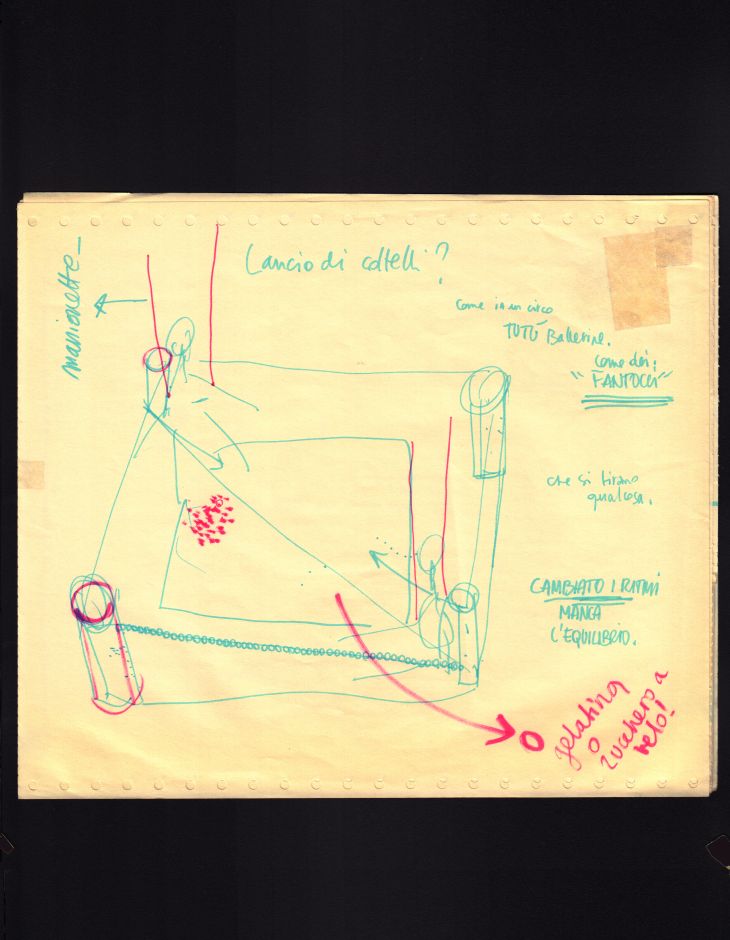 Lancio di coltelli?
marionette_
come in un circo
TUTÙ Ballerine.
come dei:
"FANTOCCI"
che si tirano
qualcosa.
CAMBIATO I RITMI
MANCA
L'EQUILIBRIO.
gelatina
o
zucchero a
velo!